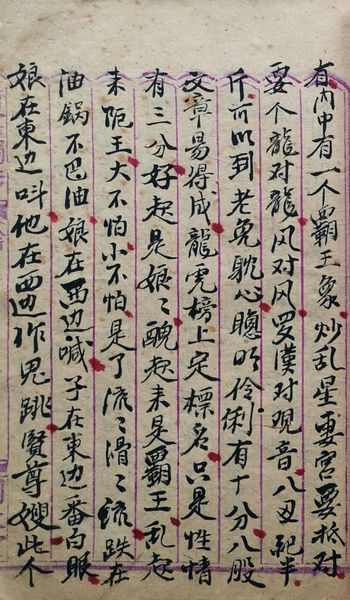 有内中有一个霸王象炒乱星要宫要抵对
要个龍对龍凤对凤罗漢对观音八丑紀半
斤所以到老免躭心聰明伶俐有十分八股
文章易得成龍虎榜上定標名只是性情
有三分好起是娘〻醜起来是霸王乱起
来阨王大不怕小不怕是了流〻滑〻跌在
油锅不巴油娘在西边喊子在東边番白眼
娘在東边呌他在西边作鬼跳賢尊嫂此个